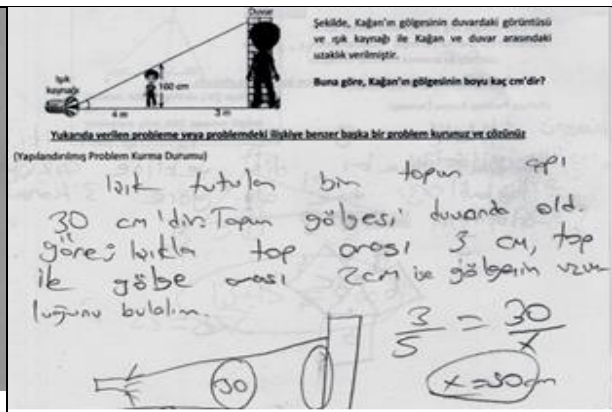 Duvar
Şekilde, Kağan'ın gölgesinin duvardaki görüntüsü
ve ışık kaynağı ile Kağan ve duvar arasındaki
uzaklık verilmiştir.
Işık
kaynağı
160 cm
Buna göre, Kağan'ın gölgesinin boyu kaç cm'dir?
4 m
3 m
Yukarıda verilen probleme veya problemdeki ilişkiye benzer başka bir problem kurunuz ve çözünüz
(Yapılandırılmış Problem Kurma Durumu)
Işık tutulan bir topun çapı
30 cm'dir. Topun gölgesi duvarda old.
göre; Işıkla top arası 3 cm, top
ile gölge arası 2cm ise gölgenin uzun
luğunu bulalım.
3/5 = 30/x
30
x=50cm